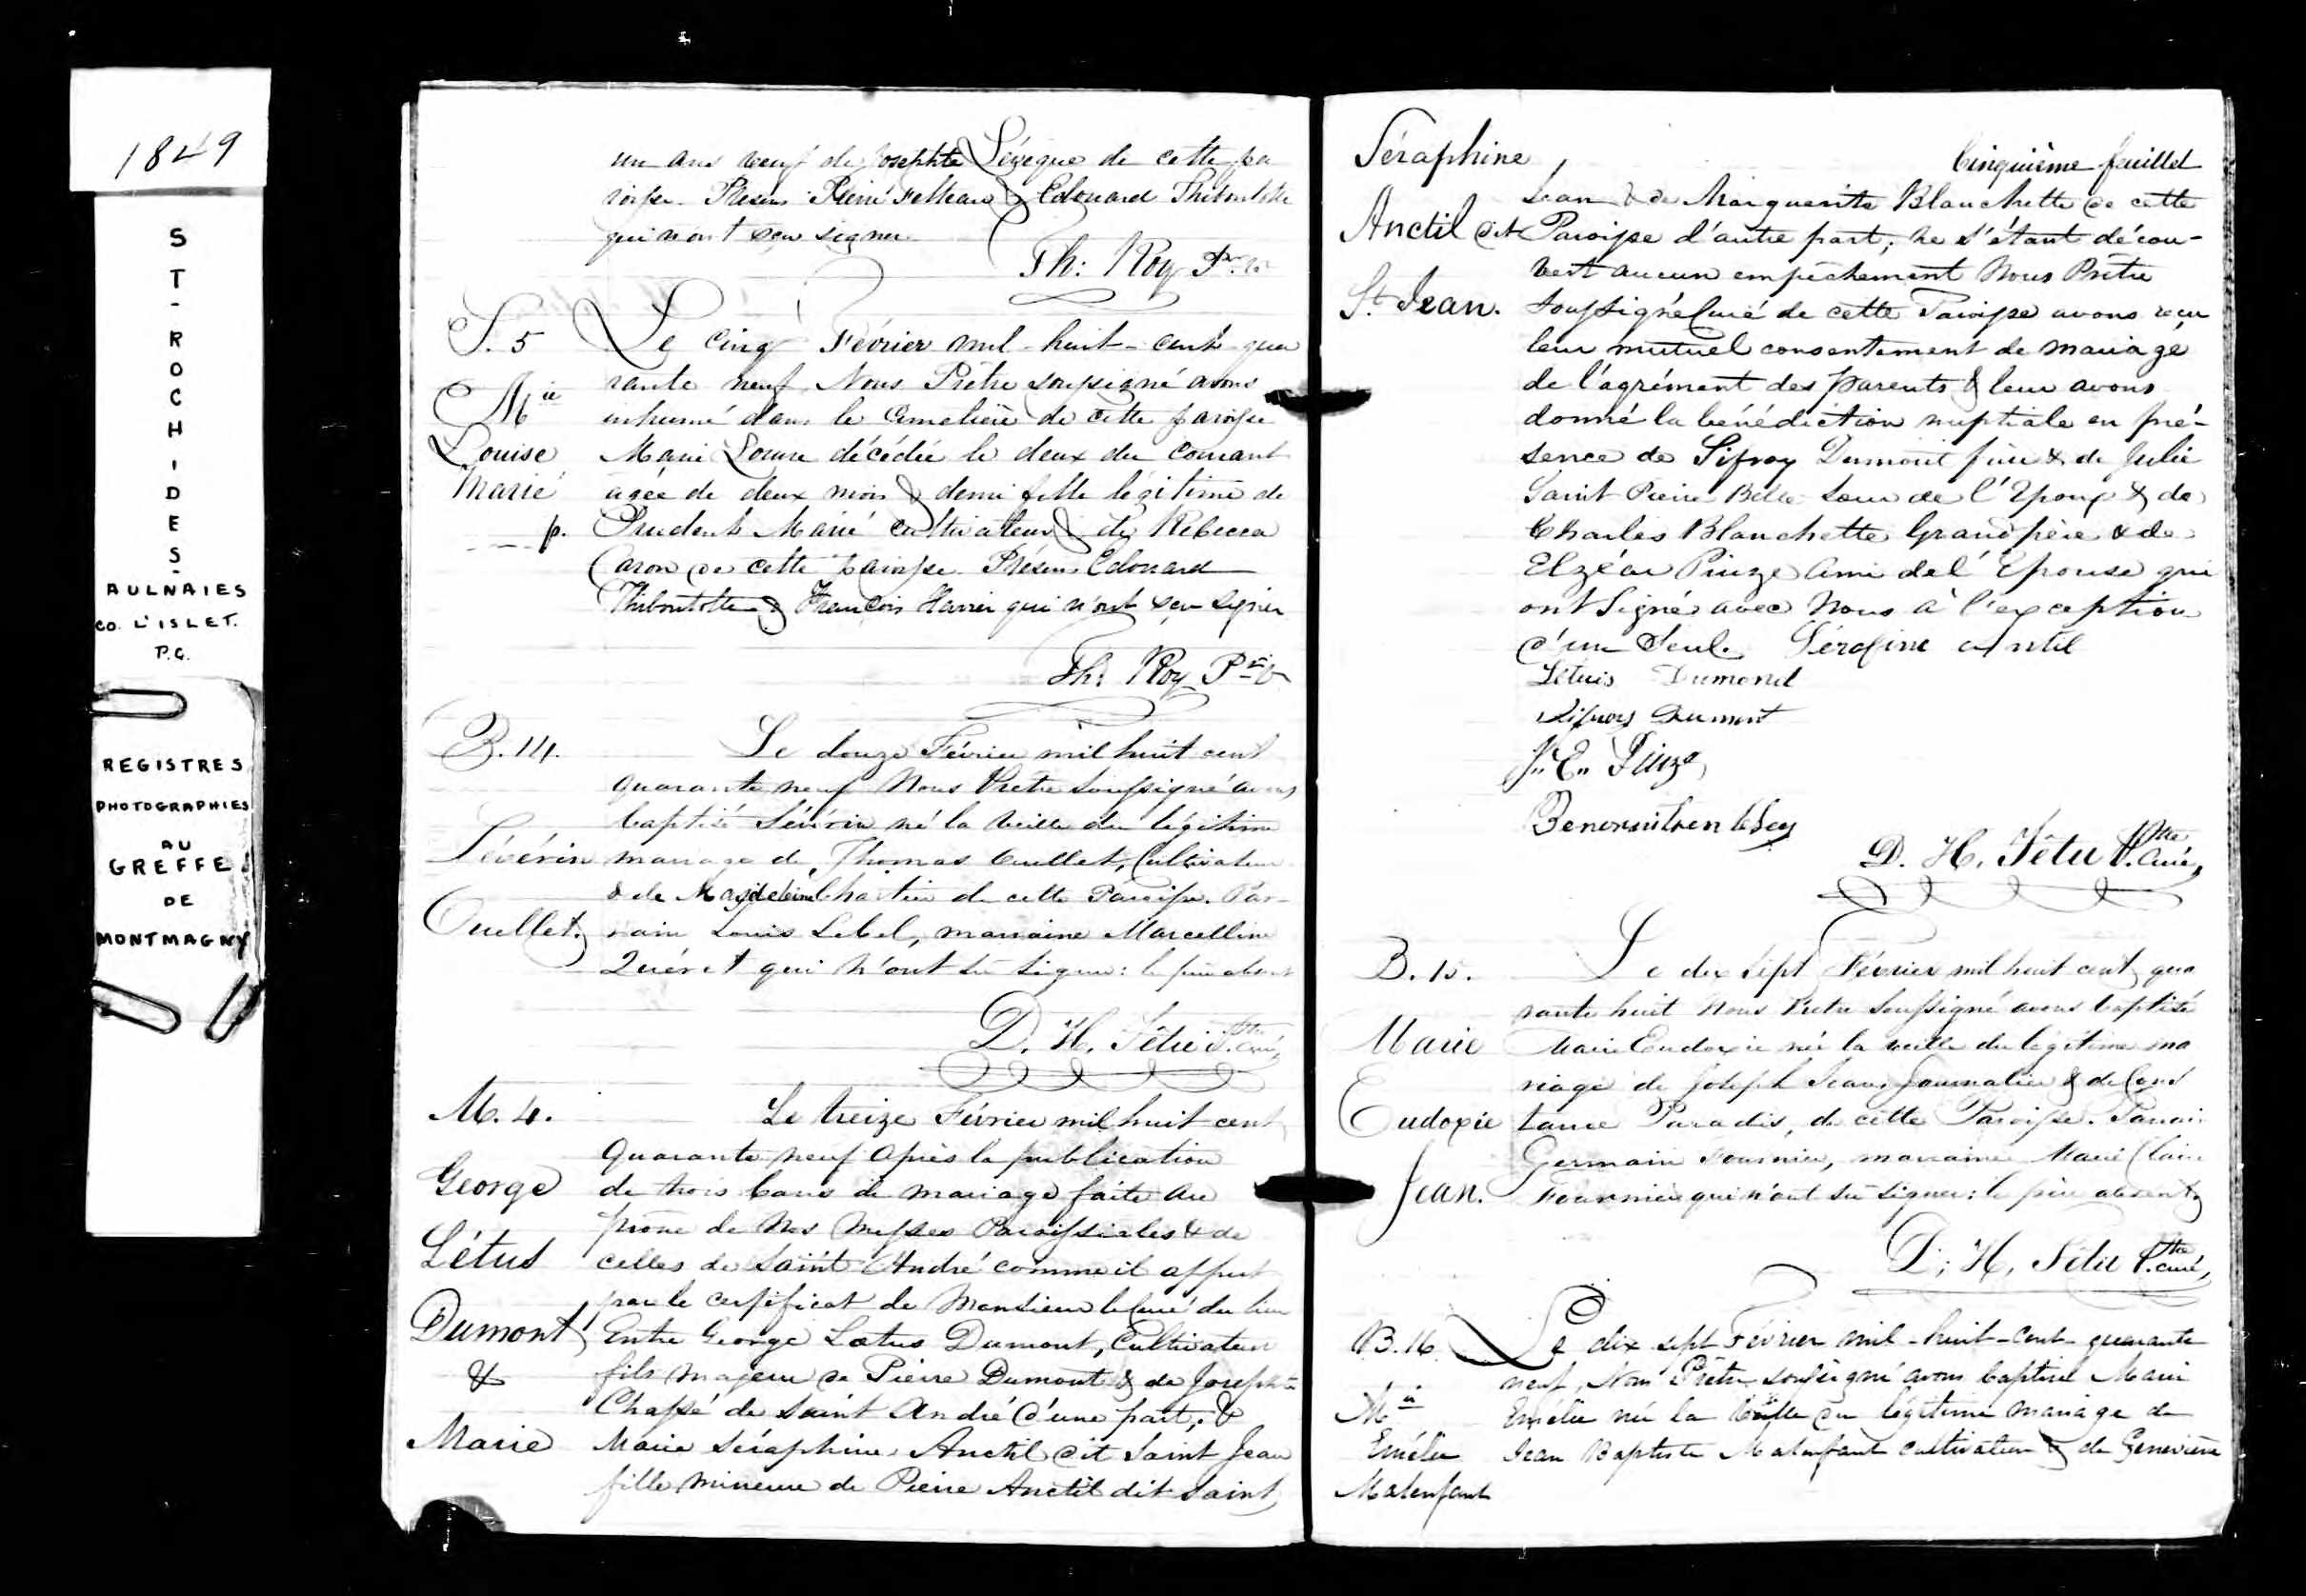 1849
ST-ROCH-DES-
AULNAIES
CO. L'ISLET.
P.Q.
REGISTRES
PHOTOGRAPHIES
AU
GREFFE
DE
MONTMAGNY
un ans veuf de Josephte Lévèque de cette pa
roisse Présens Edouard Thiboutotte
qui n'ont sçu signer
Th: Roy Ptre
S. 5
Mie
Louise
Marié
p.
Le cinq Février mil-huit-cent-qua
rante neuf, Nous Prêtre soussigné avons
inhumé dans le Cimetière de cette paroisse
Marie Louise décédée le deux du courant
agée de deux mois & demi fille légitime de
Prudent Marié cultivateur & de Rebecca
Caron de cette paroisse. Présens Edouard
Thiboutotte & François Harrier qui n'ont sçu signer
Th: Roy Ptre
B. 14.
Sévérin
Ouellet.
Le douze Février mil huit cent
quarante neuf Nous Prêtre soussigné avons
baptisé Sévérin né la veille du légitime
mariage de Thomas Ouellet, Cultivateur
& de Magdeleine Chartier de cette Paroisse. Par-
rain Louis Lebel, marraine Marcelline
Quéret qui n'ont su signer: le père absent
D. H. Têtu Ptre Curé,
M. 4.
George
Létus
Dumont
&
Marie
Le treize Février mil huit cent
quarante neuf après la publication
de trois bans de mariage faite au
prône de nos Messes Paroissiales & de
celles de Saint André comme il appert
par le certificat de Monsieur le Curé du lieu
Entre George Lætus Dumont, Cultivateur
fils majeur de Pierre Dumont & de Josephte
Chassé de Saint André d'une part; &
Marie Séraphine Anctil dit Saint Jean
fille mineure de Pierre Anctil dit Saint
Séraphine
Anctil dit
St Jean.
Cinquième feuillet
Jean & de Marguerite Blanchette de cette
Paroisse d'autre part; ne s'étant décou-
vert aucun empêchement Nous Prêtre
soussigné Curé de cette Paroisse avons reçu
leur mutuel consentement de mariage
de l'agrément des parents & leur avons
donné la bénédiction nuptiale en pré-
sence de Sifroy Dumont père & de Julie
Saint Pierre Belle Sœur de l'Epoux & de
Charles Blanchette Grand père & de
Elzéar Piuze Ami de l'Epouse qui
ont Signé avec Nous à l'exception
d'un Seul. Sérafine antil
Létuis Dumond
Sifroy Dumont
J. E. Piuze
D. H. Têtu Ptre Curé,
B. 15.
Marie
Eudoxie
Jean.
Le dix sept Février mil huit cent qua
rante huit Nous Prêtre soussigné avons baptisé
Marie Eudoxie née la veille du légitime ma
riage de Joseph Jean, Journalier & de Cons
tance Paradis, de cette Paroisse. Parrain
Germain Fournier, marraine Marie Claire
Fournier qui n'ont su signer: le père absent
D. H. Têtu Ptre curé,
B. 16
Mie
Emélie
Malenfant
Le dix sept Février mil-huit-cent-quarante
neuf, Nous Prêtre soussigné avons baptisé Marie
Emélie née la veille du légitime mariage de
Jean Baptiste Malenfant cultivateur & de Geneviève